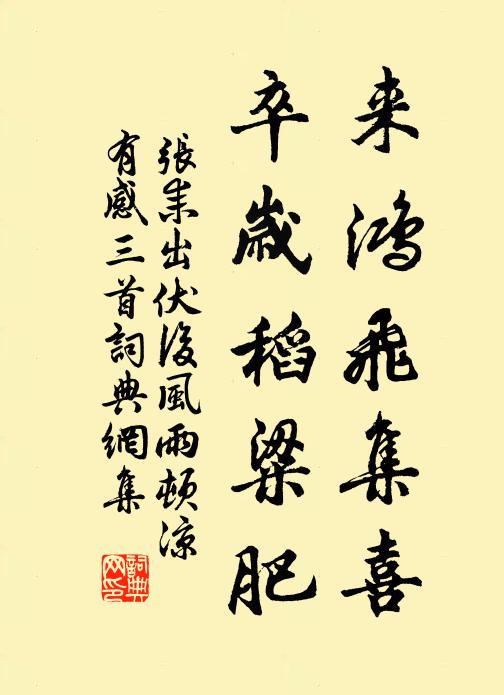 来鸿飛集喜
卒歲稻粱肥
張耒出伏後風雨頓凉
有感三首詞典網集
詞典
网印